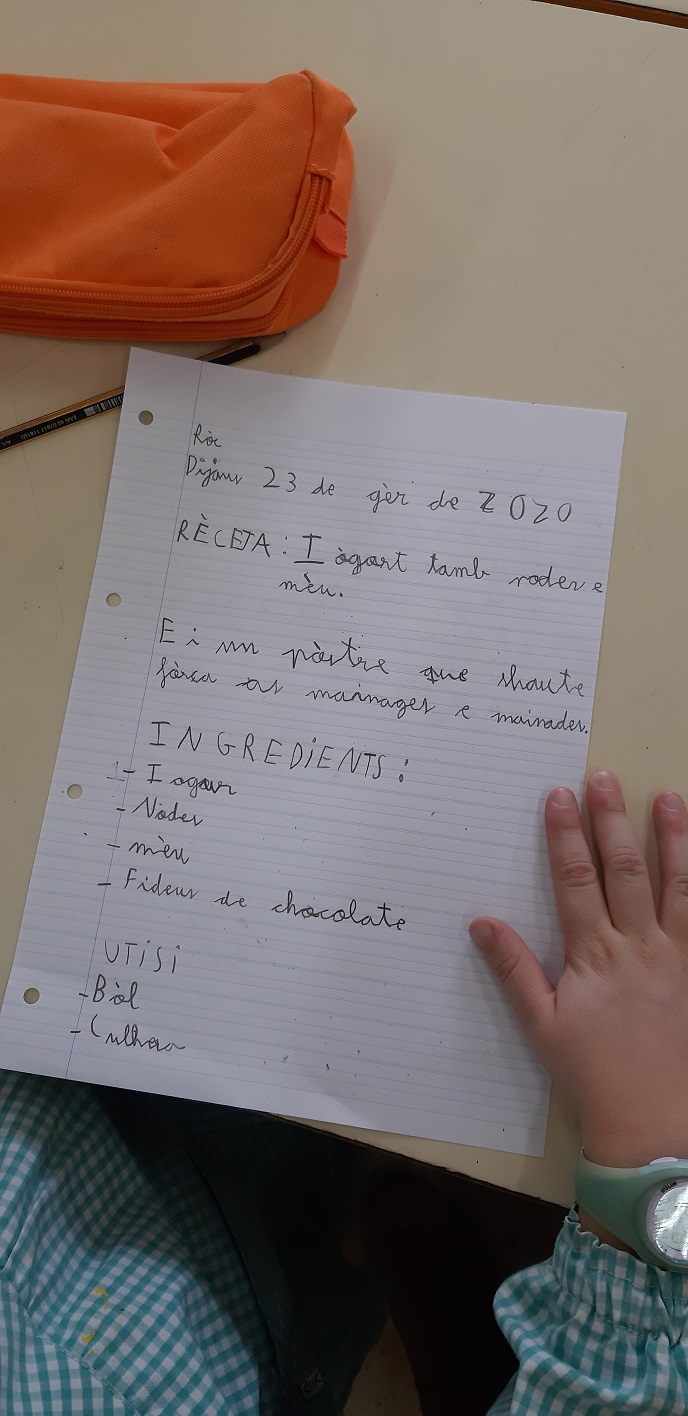 Ròc
Dijaus 23 de gèr de 2020
RÈCETA: Iògort tamb nodes e
mèu.
Ei un pòstre que shaute
fòrça as mainages e mainades.
INGREDIENTS:
- Iogur
- Nodes
- mèu
- Fideus de chocolate
UTISI
- Bòl
- Culhera